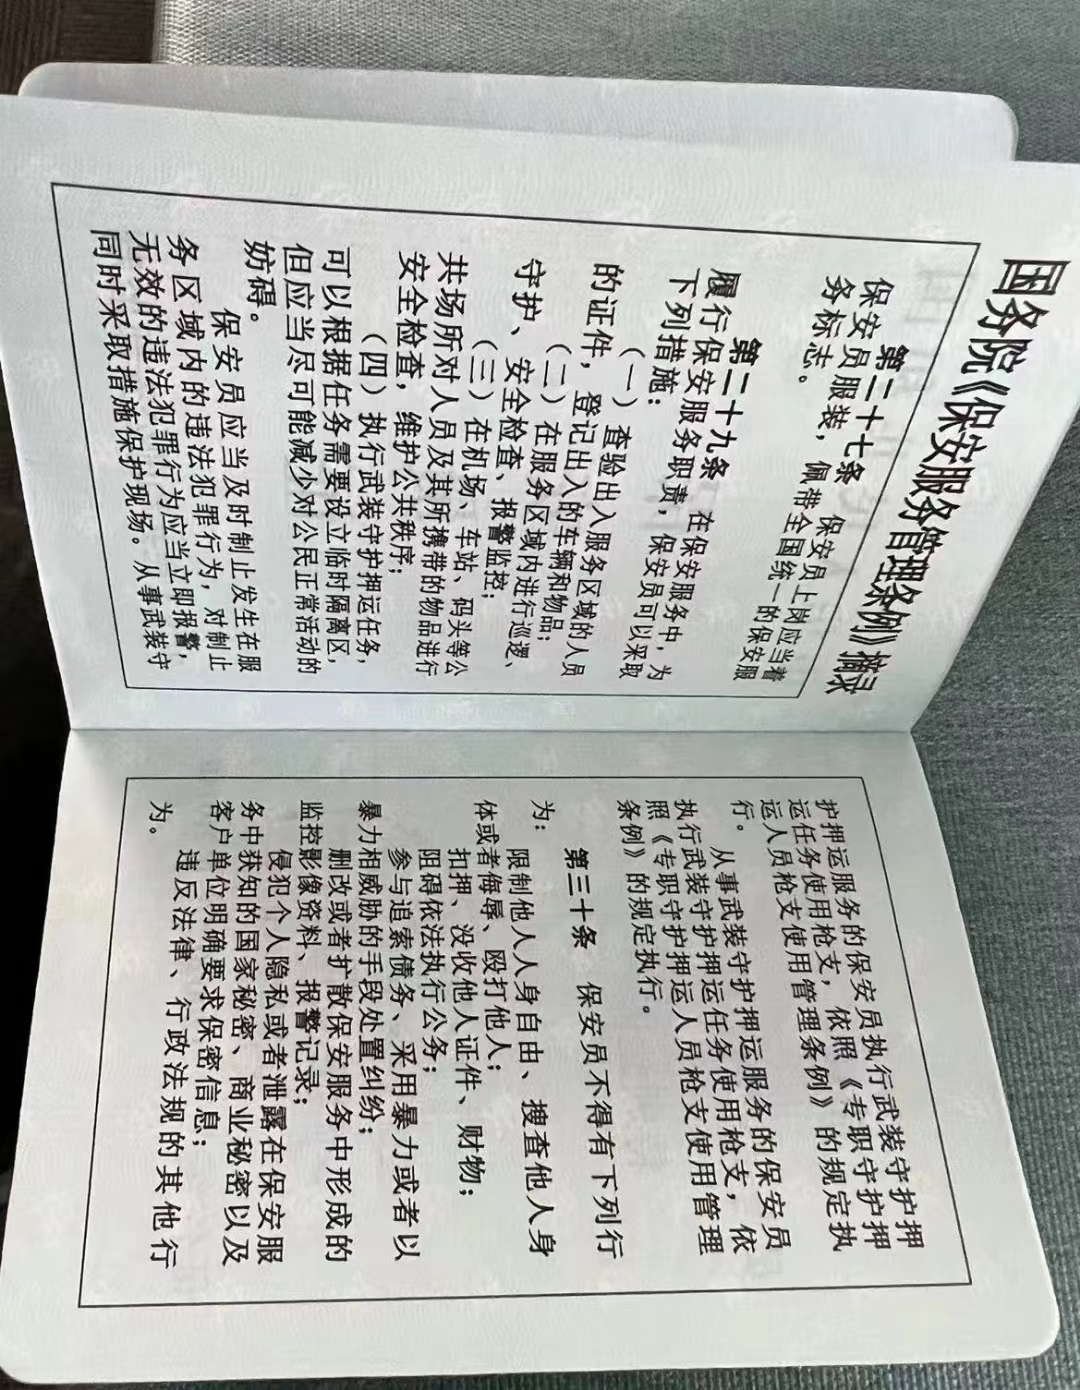 国务院《保安服务管理条例》摘录
第二十七条　保安员上岗应当着
保安员服装，佩带全国统一的保安服
务标志。
第二十九条　在保安服务中，为
履行保安服务职责，保安员可以采取
下列措施：
（一）查验出入服务区域的人员
的证件，登记出入的车辆和物品；
（二）在服务区域内进行巡逻、
守护、安全检查、报警监控；
（三）在机场、车站、码头等公
共场所对人员及其所携带的物品进行
安全检查，维护公共秩序；
（四）执行武装守护押运任务，
可以根据任务需要设立临时隔离区，
但应当尽可能减少对公民正常活动的
妨碍。
保安员应当及时制止发生在服
务区域内的违法犯罪行为，对制止
无效的违法犯罪行为应当立即报警，
同时采取措施保护现场。从事武装守
护押运服务的保安员执行武装守护押
运任务使用枪支，依照《专职守护押
运人员枪支使用管理条例》的规定执
行。
从事武装守护押运服务的保安员
执行武装守护押运任务使用枪支，依
照《专职守护押运人员枪支使用管理
条例》的规定执行。
第三十条　保安员不得有下列行
为：
限制他人人身自由、搜查他人身
体或者侮辱、殴打他人；
扣押、没收他人证件、财物；
阻碍依法执行公务；
参与追索债务、采用暴力或者以
暴力相威胁的手段处置纠纷；
删改或者扩散保安服务中形成的
监控影像资料、报警记录；
侵犯个人隐私或者泄露在保安服
务中获知的国家秘密、商业秘密以及
客户单位明确要求保密信息；
违反法律、行政法规的其他行
为。